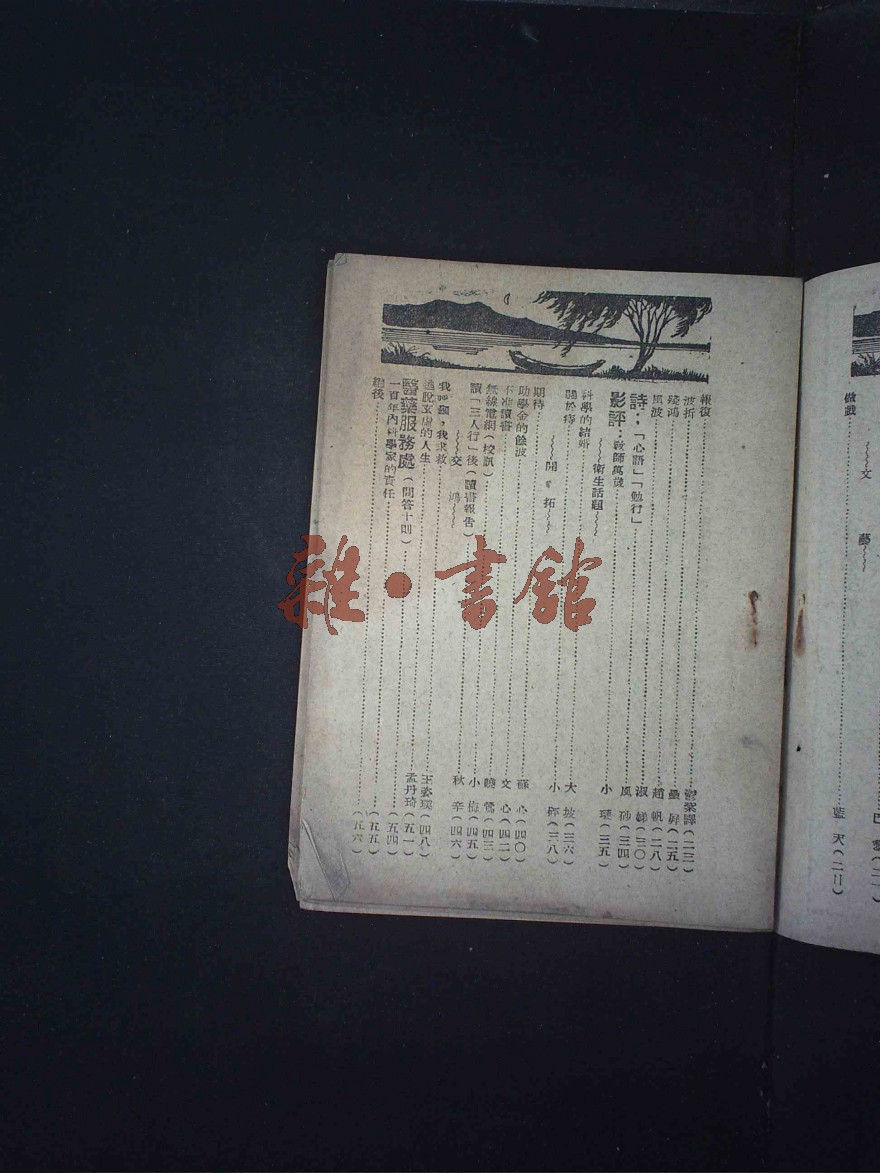 文藝
做戲……藍天
報復……譯(二三)
波折……(二五)
殘鴻……趙帆(二八)
風波……淑娣(三〇)
詩:「心語」「勉行」……風砂(三四)
影評:教師萬歲……小璉(三五)
衛生話題
科學的結婚……大坡(三六)
關於痔……小(三八)
開拓
期待……蘇心(四〇)
助學金的餘波……文心(四二)
不准讀書……聽鶯(四三)
無線電網(校訊)……小梅(四五)
讀「三人行」後(讀書報告)……秋辛(四六)
交鴻
我呼籲,我求救……王姿璞(四八)
逃脫玄虛的人生……孟丹琦(五一)
醫藥服務處(問答十則)……(五四)
一百年內科學家的責任……(五五)
編後……(五六)
雜·書館